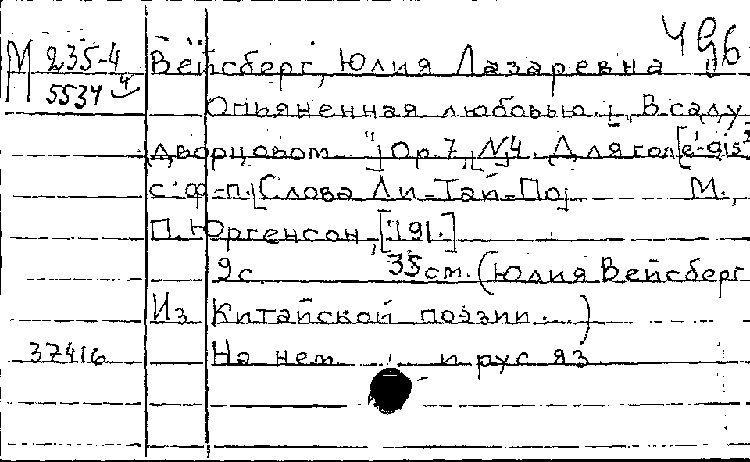 М 235-4 Вейсберг, Юлия Лазаревна
5534
Опьяненная любовью. [В саду
дворцовом ..."] Op. 7, [№] 4. Для гол. [e'-gis²]
с ф-п. [Слова Ли-Тай-По]. М.,
П. Юргенсон, [191.]
9 с. 35 см. (Юлия Вейсберг
Из Китайской поэзии. )
37416 На нем. и рус яз